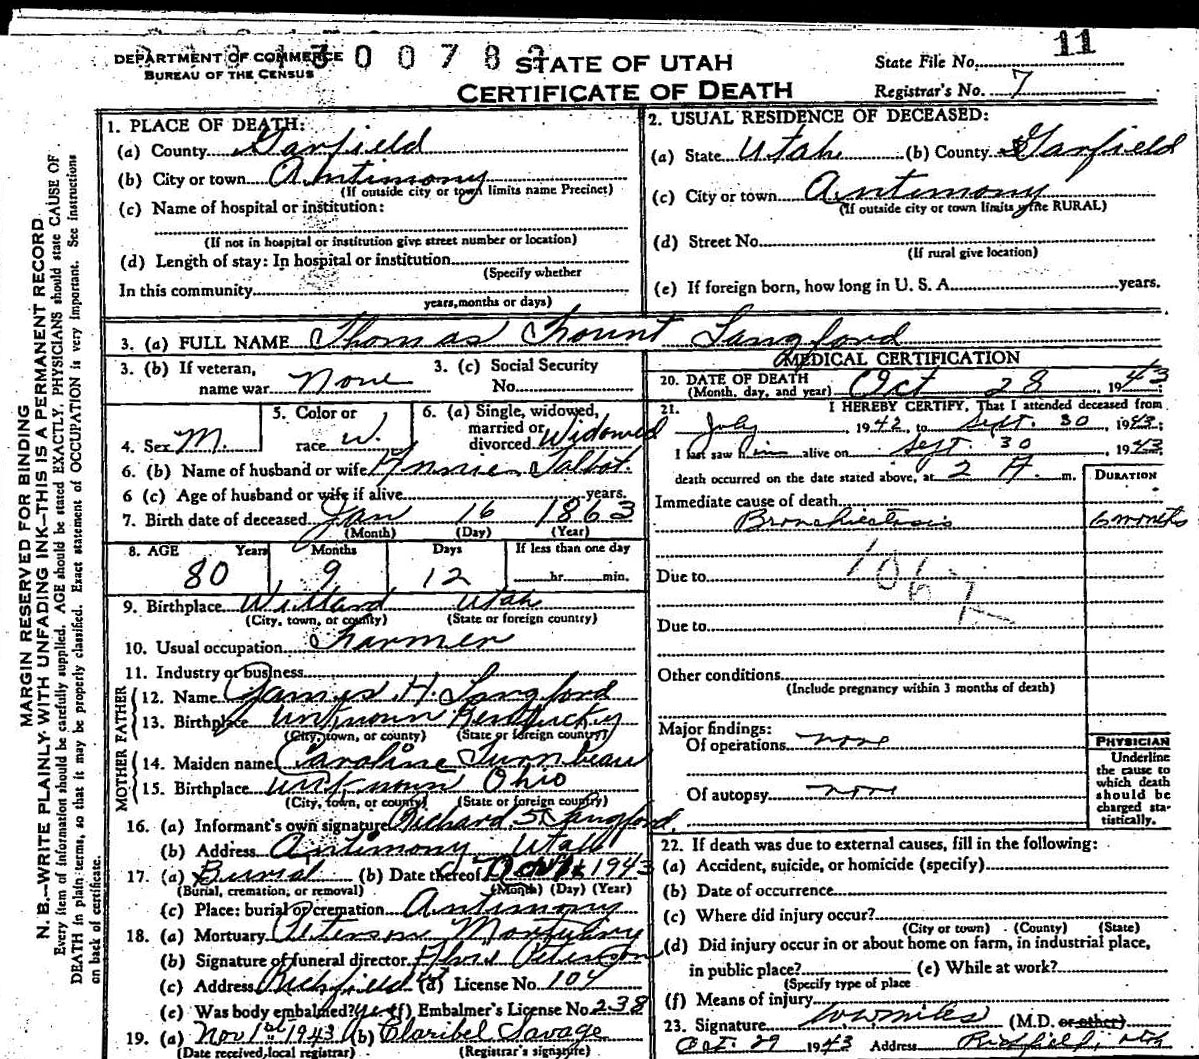 DEPARTMENT OF COMMERCE
BUREAU OF THE CENSUS
STATE OF UTAH
CERTIFICATE OF DEATH
State File No. 11
Registrar's No. 7
MARGIN RESERVED FOR BINDING
N. B.—WRITE PLAINLY WITH UNFADING INK—THIS IS A PERMANENT RECORD
Every item of information should be carefully supplied. AGE should be stated EXACTLY. PHYSICIANS should state CAUSE OF
DEATH in plain terms, so that it may be properly classified. Exact statement of OCCUPATION is very important. See instructions
on back of certificate.
1. PLACE OF DEATH:
(a) County Garfield
(b) City or town Antimony
(If outside city or town limits name Precinct)
(c) Name of hospital or institution:
(If not in hospital or institution give street number or location)
(d) Length of stay: In hospital or institution
(Specify whether
In this community
years, months or days)
2. USUAL RESIDENCE OF DECEASED:
(a) State Utah (b) County Garfield
(c) City or town Antimony
(If outside city or town limits write RURAL)
(d) Street No.
(If rural give location)
(e) If foreign born, how long in U. S. A. years.
3. (a) FULL NAME Thomas Fount Langford
3. (b) If veteran,
name war None
3. (c) Social Security
No.
4. Sex M.
5. Color or
race W.
6. (a) Single, widowed,
married or
divorced Widowed
6. (b) Name of husband or wife Annie Talbot.
6 (c) Age of husband or wife if alive years.
7. Birth date of deceased Jan 16 1863
(Month) (Day) (Year)
8. AGE Years Months Days If less than one day
80 9 12 hr. min.
9. Birthplace Willard Utah
(City, town, or county) (State or foreign country)
10. Usual occupation Farmer
11. Industry or business
FATHER
12. Name James H. Langford
13. Birthplace Unknown Kentucky
(City, town, or county) (State or foreign country)
MOTHER
14. Maiden name Caroline Turnbeau
15. Birthplace Unknown Ohio
(City, town, or county) (State or foreign country)
16. (a) Informant's own signature Richard S. Langford.
(b) Address Antimony Utah
17. (a) Burial (b) Date thereof Nov 1 1943
(Burial, cremation, or removal) (Month) (Day) (Year)
(c) Place: burial or cremation Antimony
18. (a) Mortuary Peterson Mortuary
(b) Signature of funeral director Peterson
(c) Address Richfield (d) License No. 104
(e) Was body embalmed? yes (f) Embalmer's License No. 238
19. (a) Nov 1st 1943 (b) Claribel Savage
(Date received, local registrar) (Registrar's signature)
MEDICAL CERTIFICATION
20. DATE OF DEATH
(Month, day, and year) Oct 28, 1943
21. I HEREBY CERTIFY, That I attended deceased from
July, 1942, to Sept. 30, 1943;
I last saw him alive on Sept. 30, 1943;
death occurred on the date stated above, at 2 A. m.
DURATION
Immediate cause of death
Bronchiectasis 6 months
Due to
Due to
Other conditions
(Include pregnancy within 3 months of death)
Major findings:
Of operations none
Of autopsy none
PHYSICIAN
Underline
the cause to
which death
should be
charged sta-
tistically.
22. If death was due to external causes, fill in the following:
(a) Accident, suicide, or homicide (specify)
(b) Date of occurrence
(c) Where did injury occur?
(City or town) (County) (State)
(d) Did injury occur in or about home on farm, in industrial place,
in public place? (e) While at work?
(Specify type of place
(f) Means of injury
23. Signature (M.D. or other)
Oct. 29 1943 Address Richfield, Utah